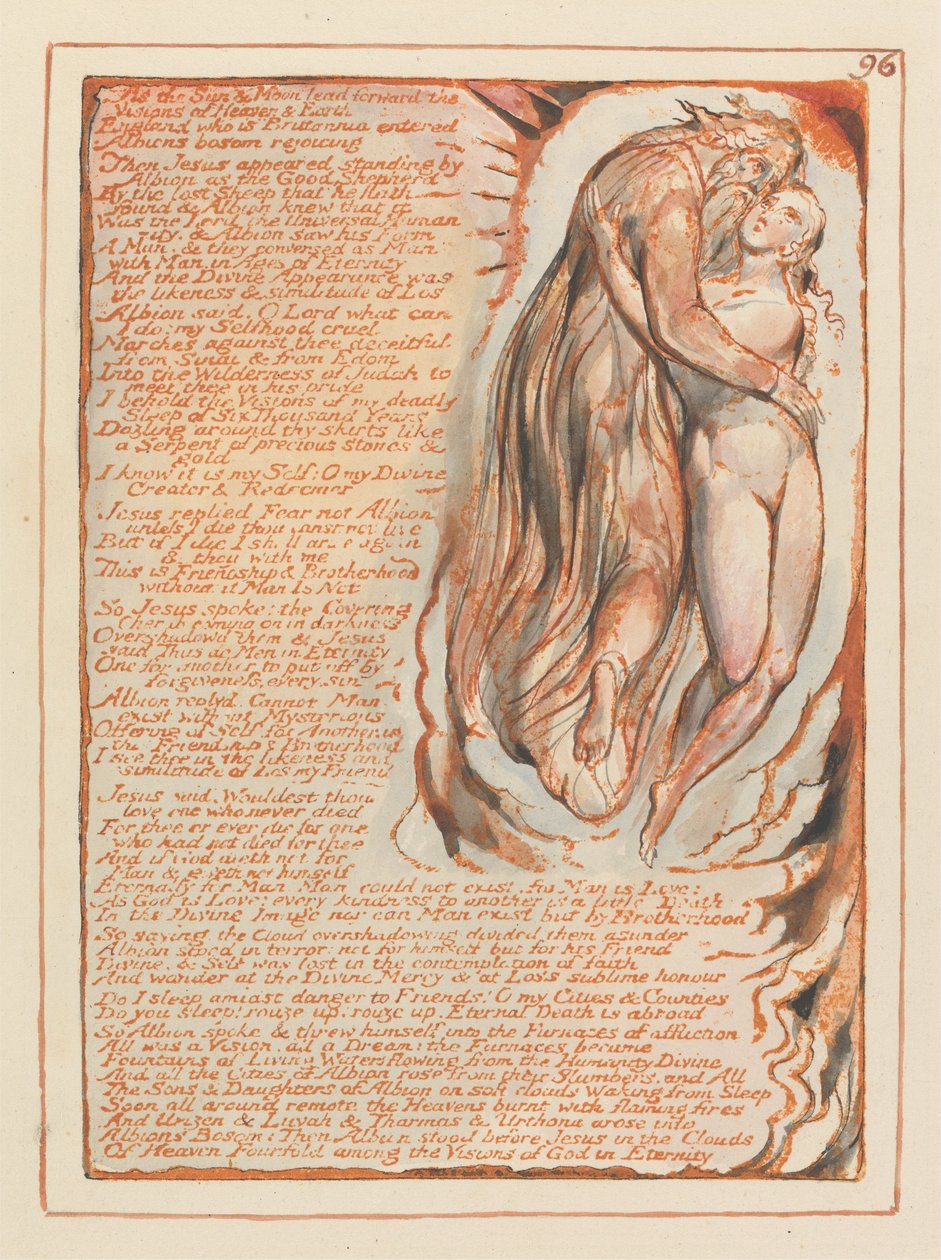 96
As the Sun & Moon lead forward the
Visions of Heaven & Earth
England who is Brittannia entered
Albions bosom rejoicing
Then Jesus appeared standing by
Albion as the Good Shepherd
By the lost Sheep that he hath
found & Albion knew that it
Was the Lord the Universal Humanity
& Albion saw his Form
A Man. & they conversed as Man
with Man, in Ages of Eternity
And the Divine Appearance was
the likeness & similitude of Los
Albion said. O Lord what can
I do: my Selfhood cruel
Marches against thee deceitful
from Sinai & from Edom
Into the Wilderness of Judah to
meet thee in his pride
I behold the Visions of my deadly
Sleep of Six Thousand Years
Dazling around thy skirts like
a Serpent of precious stones &
gold
I know it is my Self: O my Divine
Creator & Redeemer
Jesus replied Fear not Albion
unless I die thou canst not live
But if I die I shall arise again
& thou with me
This is Friendship & Brotherhood
without it Man Is Not
So Jesus spoke: the Covering
Cherub coming on in darkness
Overshadowd them & Jesus
said Thus do Men in Eternity
One for another to put off by
forgiveness, every sin
Albion replyd. Cannot Man
exist without Mysterious
Offering of Self for Another, is
this Friendship & Brotherhood
I see thee in the likeness and
similitude of Los my Friend
Jesus said. Wouldest thou
love one who never died
For thee or ever die for one
who had not died for thee
And if God dieth not for
Man & giveth not himself
Eternally for Man Man could not exist. for Man is Love:
As God is Love: every kindness to another is a little Death
In the Divine Image nor can Man exist but by Brotherhood
So saying. the Cloud overshadowing divided them asunder
Albion stood in terror: not for himself but for his Friend
Divine, & Self was lost in the contemplation of faith
And wonder at the Divine Mercy & at Los's sublime honour
Do I sleep amidst danger to Friends! O my Cities & Counties
Do you sleep! rouze up. rouze up. Eternal Death is abroad
So Albion spoke & threw himself into the Furnaces of affliction
All was a Vision, all a Dream: the Furnaces became
Fountains of Living Waters flowing from the Humanity Divine
And all the Cities of Albion rose from their Slumbers, and All
The Sons & Daughters of Albion on soft clouds Waking from Sleep
Soon all around remote the Heavens burnt with flaming fires
And Urizen & Luvah & Tharmas & Urthona arose into
Albions Bosom: Then Albion stood before Jesus in the Clouds
Of Heaven Fourfold among the Visions of God in Eternity